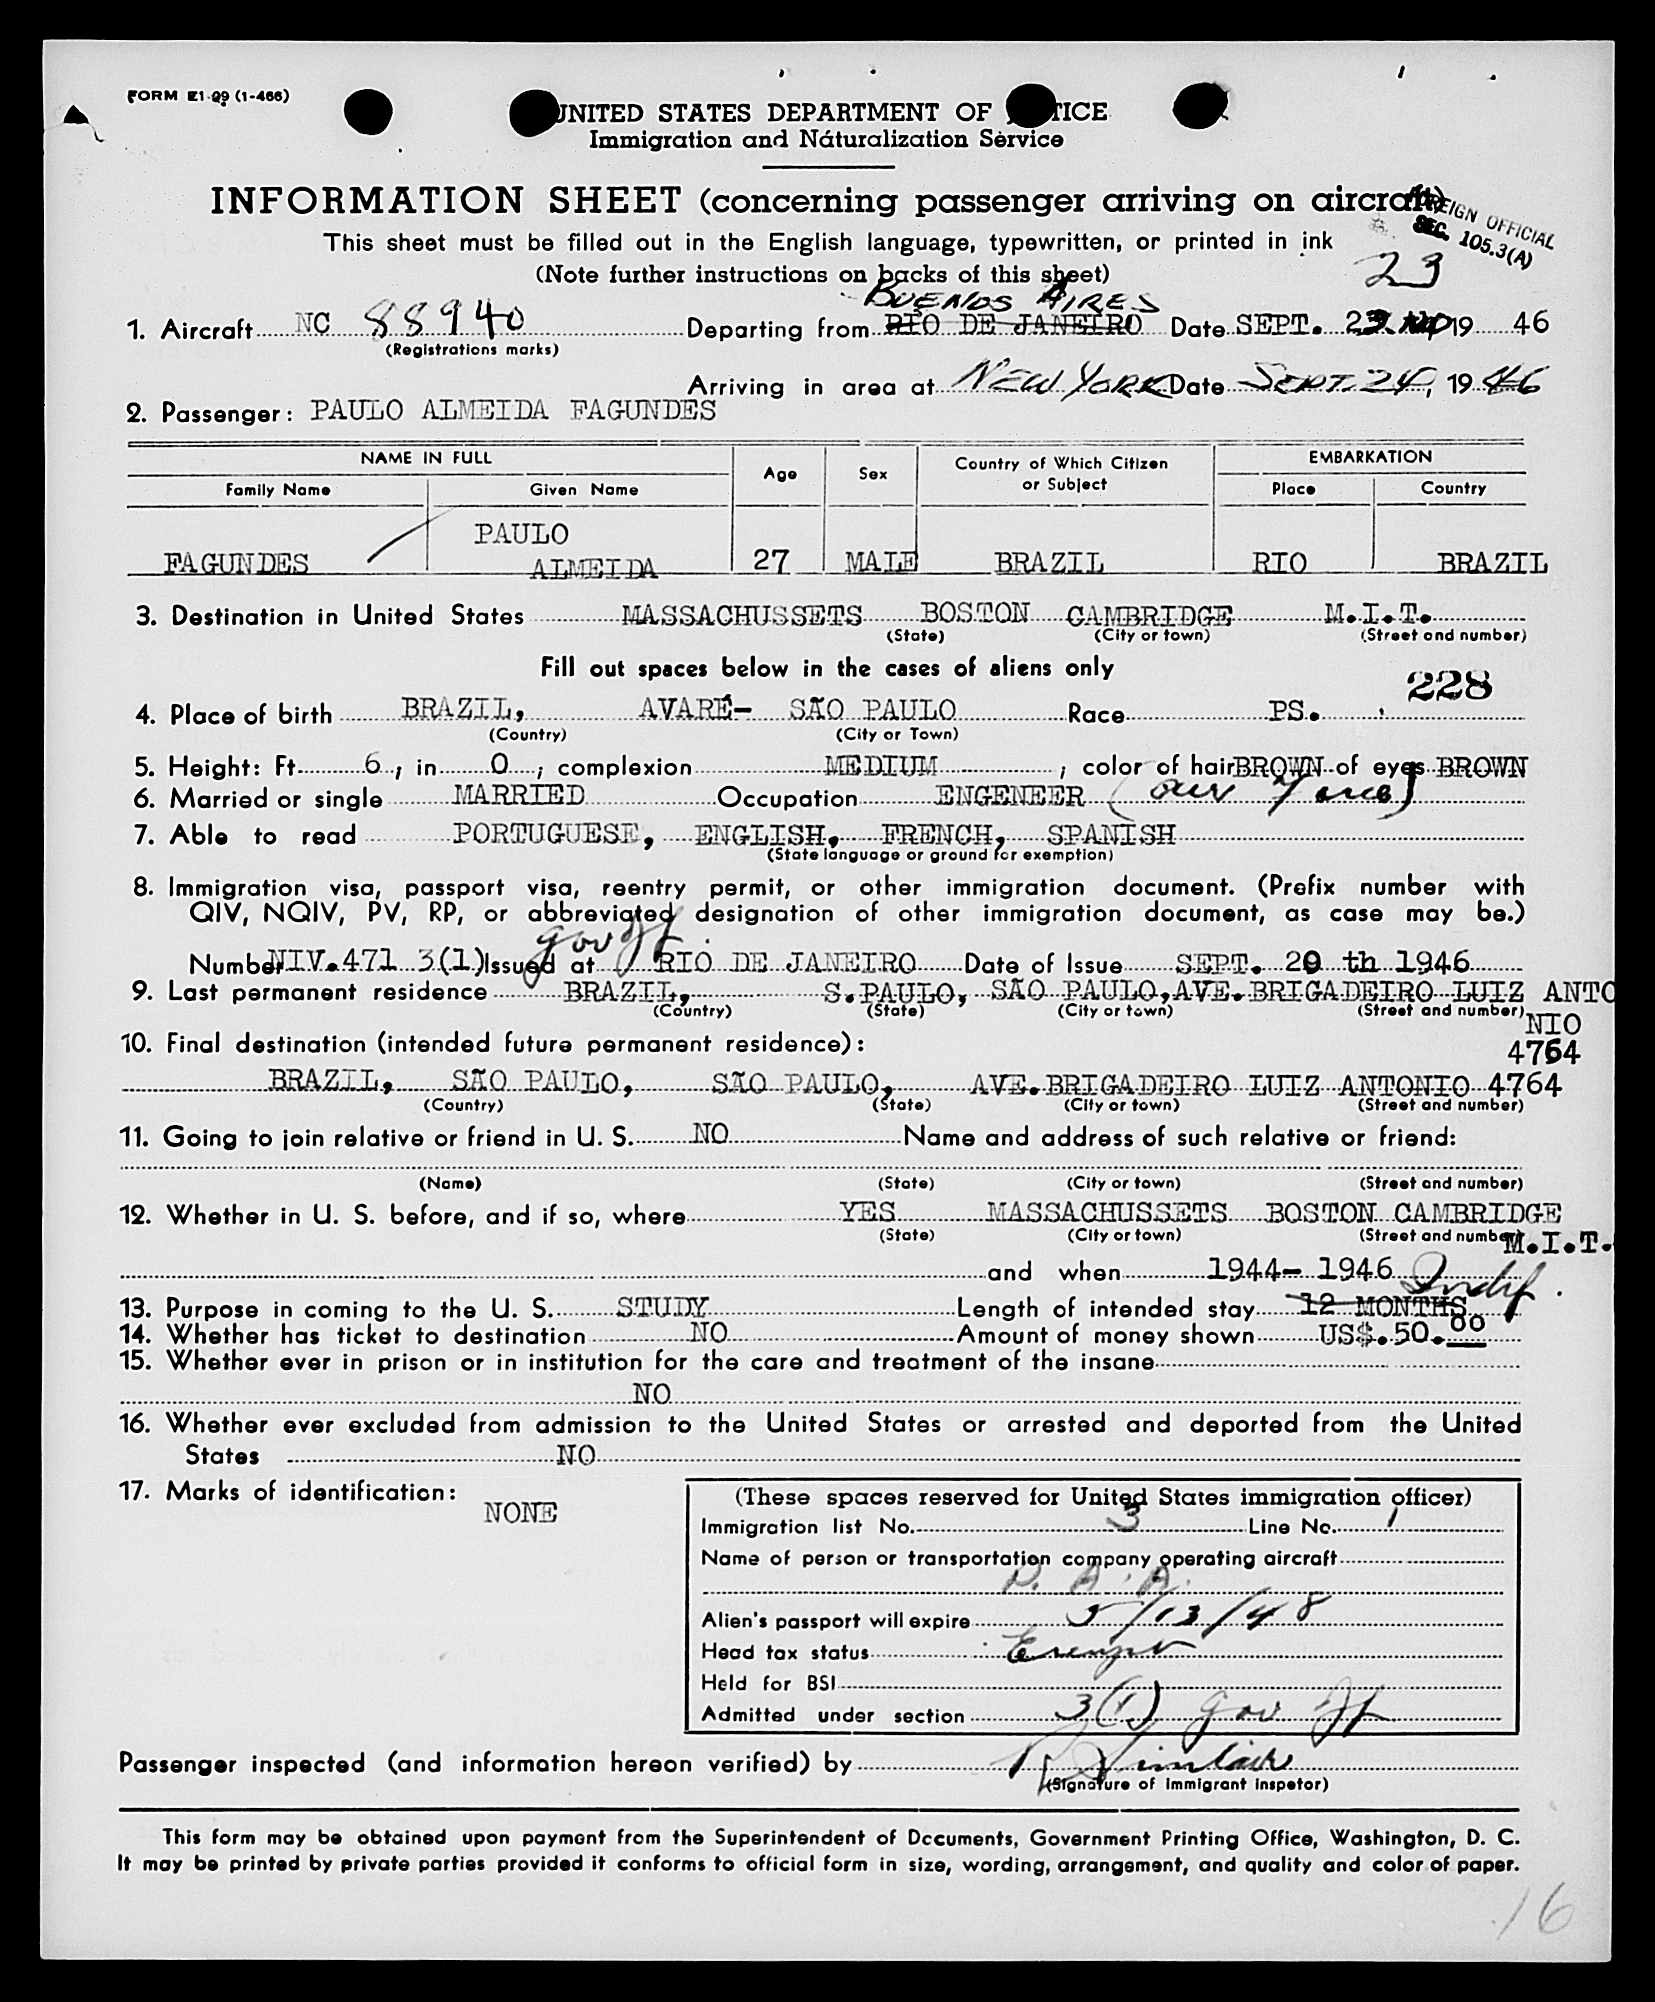 FORM E1-99 (1-466)
UNITED STATES DEPARTMENT OF TICE
Immigration and Naturalization Service
INFORMATION SHEET (concerning passenger arriving on aircraft)
FOREIGN OFFICIAL
SEC. 105.3(A)
This sheet must be filled out in the English language, typewritten, or printed in ink
(Note further instructions on backs of this sheet)
23
BUENOS AIRES
1. Aircraft NC 88940 Departing from RIO DE JANEIRO Date SEPT. 23 1946
(Registrations marks)
Arriving in area at NEW YORK Date SEPT. 24, 1946
2. Passenger: PAULO ALMEIDA FAGUNDES
NAME IN FULL Age Sex Country of Which Citizen or Subject EMBARKATION
Family Name Given Name Place Country
PAULO
FAGUNDES ALMEIDA 27 MALE BRAZIL RIO BRAZIL
3. Destination in United States MASSACHUSSETS BOSTON CAMBRIDGE M.I.T.
(State) (City or town) (Street and number)
Fill out spaces below in the cases of aliens only
228
4. Place of birth BRAZIL, AVARÉ- SÃO PAULO Race PS.
(Country) (City or Town)
5. Height: Ft. 6, in. 0; complexion MEDIUM; color of hair BROWN of eyes BROWN
6. Married or single MARRIED Occupation ENGENEER (air Force)
7. Able to read PORTUGUESE, ENGLISH, FRENCH, SPANISH
(State language or ground for exemption)
8. Immigration visa, passport visa, reentry permit, or other immigration document. (Prefix number with
QIV, NQIV, PV, RP, or abbreviated designation of other immigration document, as case may be.)
gov
Number NIV.471 3(1) Issued at RIO DE JANEIRO Date of Issue SEPT. 20 th 1946
9. Last permanent residence BRAZIL, S.PAULO, SÃO PAULO, AVE.BRIGADEIRO LUIZ ANTO
(Country) (State) (City or town) (Street and number) NIO
10. Final destination (intended future permanent residence): 4764
BRAZIL, SÃO PAULO, SÃO PAULO, AVE.BRIGADEIRO LUIZ ANTONIO 4764
(Country) (State) (City or town) (Street and number)
11. Going to join relative or friend in U. S. NO Name and address of such relative or friend:
(Name) (State) (City or town) (Street and number)
12. Whether in U. S. before, and if so, where YES MASSACHUSSETS BOSTON CAMBRIDGE
(State) (City or town) (Street and number) M.I.T.
and when 1944- 1946 Indef.
13. Purpose in coming to the U. S. STUDY Length of intended stay 12 MONTHS
14. Whether has ticket to destination NO Amount of money shown US$.50.00
15. Whether ever in prison or in institution for the care and treatment of the insane
NO
16. Whether ever excluded from admission to the United States or arrested and deported from the United
States NO
17. Marks of identification:
NONE
(These spaces reserved for United States immigration officer)
Immigration list No. 3 Line No. 1
Name of person or transportation company operating aircraft
P. A. A.
Alien's passport will expire 5/13/48
Head tax status Exempt
Held for BSI
Admitted under section 3(1) gov
Passenger inspected (and information hereon verified) by Sinclair
(Signature of Immigrant Inspetor)
This form may be obtained upon payment from the Superintendent of Documents, Government Printing Office, Washington, D. C.
It may be printed by private parties provided it conforms to official form in size, wording, arrangement, and quality and color of paper.
16